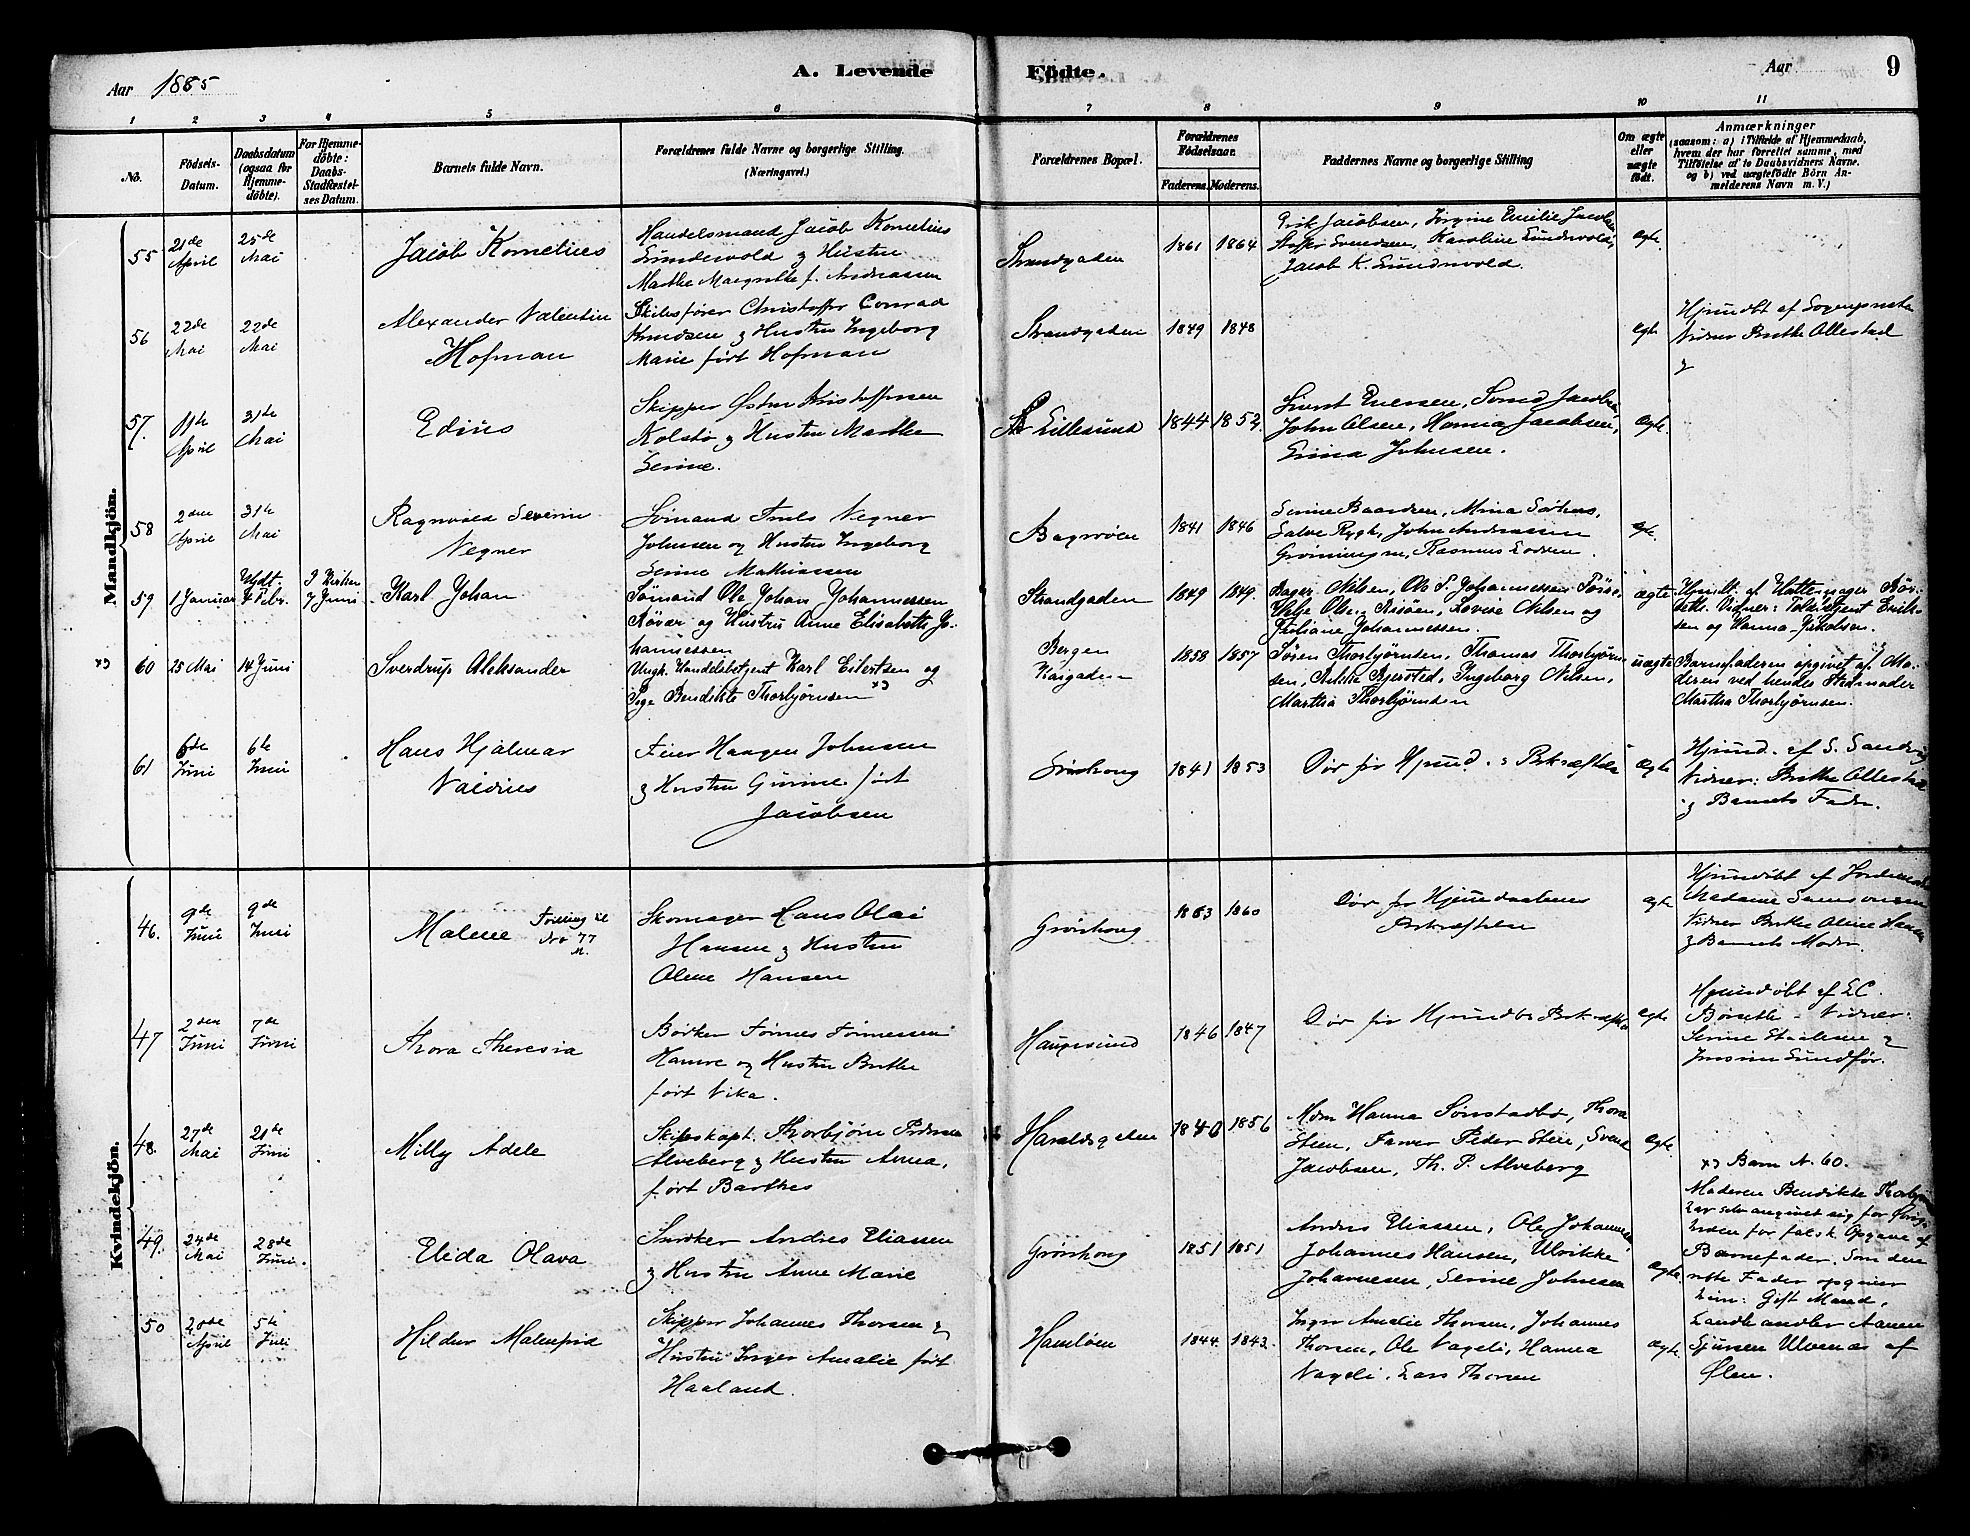 Aar 1885
A. Levende
Födte.
Aar
9
1 2 3 4 5 6 7 8 9 10 11
No.
Födsels-
Datum.
Daabsdatum
(ogsaa for
Hjemme-
döbte).
For Hjemme-
döbte:
Daabs-
Stadfæstel-
ses Datum.
Barnets fulde Navn.
Forældrenes fulde Navne og borgerlige Stilling.
(Næringsvei.)
Forældrenes Bopæl.
Forældrenes
Födselsaar.
Faderens. Moderens.
Faddernes Navne og borgerlige Stilling
Om ægte
eller
uægte
födt.
Anmærkninger
(saasom: a) i Tilfælde af Hjemmedaab,
hvem der har forrettet samme, med
Tilföielse af to Daabsvidners Navne.
og b) ved uægtefödte Börn An-
melderens Navn m. V.)
Mandkjön.
55
21de
April
25de
Mai
Jacob Kornelius
Handelsmand Jacob Kornelius
Sundevold og Hustru
Marthe Margrethe f. Andreassen
Strandgaden
1861
1864
Erik Jacobsen, Jørgine Emilie Jacobsen
Svendsen, Karoline Sundvold,
Jacob K. Sundvold.
ægte.
56
22de
Mai
22de
Mai
Alexander Valentin
Hofman
Skibsfører Christoffer Conrad
Knudsen og Hustru Ingeborg
Marie født Hofman
Strandgaden
1849
1848
ægte
Hjemdøbt af Sognepresten
Vidner Berthe Ollestad
og
57.
11te
April
31te
Mai
Edius
Skipper Østen Kristoffersen
Kolstø og Hustru Marthe
Serine.
Lillesund
1844
1852.
Sivert Enersen, Svend Jacobsen,
John Olsen, Hanna Jacobsen,
Serina Johnsen.
ægte.
58
2den
April
31te
Mai
Ragnvald Severin
Vegner
Sømand Vegner
Johnsen og Hustru Ingeborg
Serine Mathiassen
Bagrøen
1841
1846
Serine Baardsen, Mina
Salve Rygh, John Andreassen
Grønningen, Rasmus
ægte.
59
1 Januar
Hjdt.
4 Febr.
I Kirken
7 Juni
Karl Johan
Sömand Ole Johan Johannessen
Rövær og Hustru Anne Elisabeth Jo-
hannessen
Strandgaden
1849
1849.
Bager Nilsen, Ole T. Johannessen
Olsen Risöen, Lovise Nilsen og
Juliane Johannessen.
ægte
Hjemdt. af Hattemager Bör-
Vidner: Toldbetjent Erik-
sen og Hanna Jakobsen.
x)
60
25 Mai
14 Juni
Sverdrup Aleksander
Ungk. Handelsbetjent Karl Eilertsen og
Pige Bendikte Thorbjörnsen x)
Bergen
Kaigaden
1858
1857
Sören Thorbjörnsen, Thomas Thorbjörn-
sen, Bjersted, Ingeborg Nilsen,
Martha Thorbjörnsen
uægte
Barnefaderen opgivet af Mo-
deren ved hendes Stedmoder
Martha Thorbjörnsen.
61
6de
Juni
6te
Juni
Hans Hjalmar
Naidius
Feier Haagen Johnsen
og Hustru Gurine født
Jacobsen
Sørhong
1841
1853
Dør før Hjemd. Bekræftelse
ægte
Hjemd. af S. Sandvig
Vidner: Berthe Ollestad
og Barnets Fader.
Kvindekjön.
46.
9de
Juni
9de
Juni
Malene
Tvilling til
Nro 77
M.
Skomager Hans Olai
Hansen og Hustru
Olene Hansen
Grønhong
1863
1860
Dør før Hjemdaabens
Bekræftelse
ægte
Hjemdøbt af Jordemoder
Madame Samsonsen
Vidner Berthe Oline Hansen
og Barnets Moder.
47
2den
Juni
7de
Juni
Thora Theresia
Bødker Tønnes Tønnessen
Hamre og Hustru Berthe
født Vika.
Haugesund
1846
1847
Dør før Hjemdbs Bekræftelse
ægte
Hjemdøbt af E C.
Børseth - Vidner:
Serine Staalesen og
Sundfør.
48.
27de
Mai
21de
Juni
Milly Adele
Skibskapt. Thorbjørn Pedersen
Alveberg og Hustru Anna,
født Barthes
Haraldsgaden
1840
1856
Mdm Hanna Sønstabø, Thora
Steen, Farver Peder Steen, Svend
Jacobsen, Th. P. Alveberg
ægte.
x) Barn N. 60.
Moderen Bendikte Thorbjørnsen
har selv angivet sig for Øvrig-
heden for falsk Opgave af
Barnefader. Som den
rette Fader opgiver
hun: Gift Mand,
Landhandler Aanen
Sjursen Ulvenæs af
Ølen.
49.
24de
Mai
28de
Juni.
Elida Olava
Snedker Andreas Eliassen
og Hustru Anne Marie
Grønhong
1851
1851
Andreas Eliassen, Ole Johannesen,
Johannes Hansen, Ulrikke
Johannesen, Serine Johnsen
ægte
50
28de
April
5te
Juli
Hildur Malenfrid
Skipper Johannes Thorsen og
Hustru Inger Amalie født
Haaland.
Hasseløen
1844.
1843.
Inger Amalie Thorsen, Johannes
Thorsen, Ole Nageli, Hanna
Nageli, Lars Thorsen
ægte.